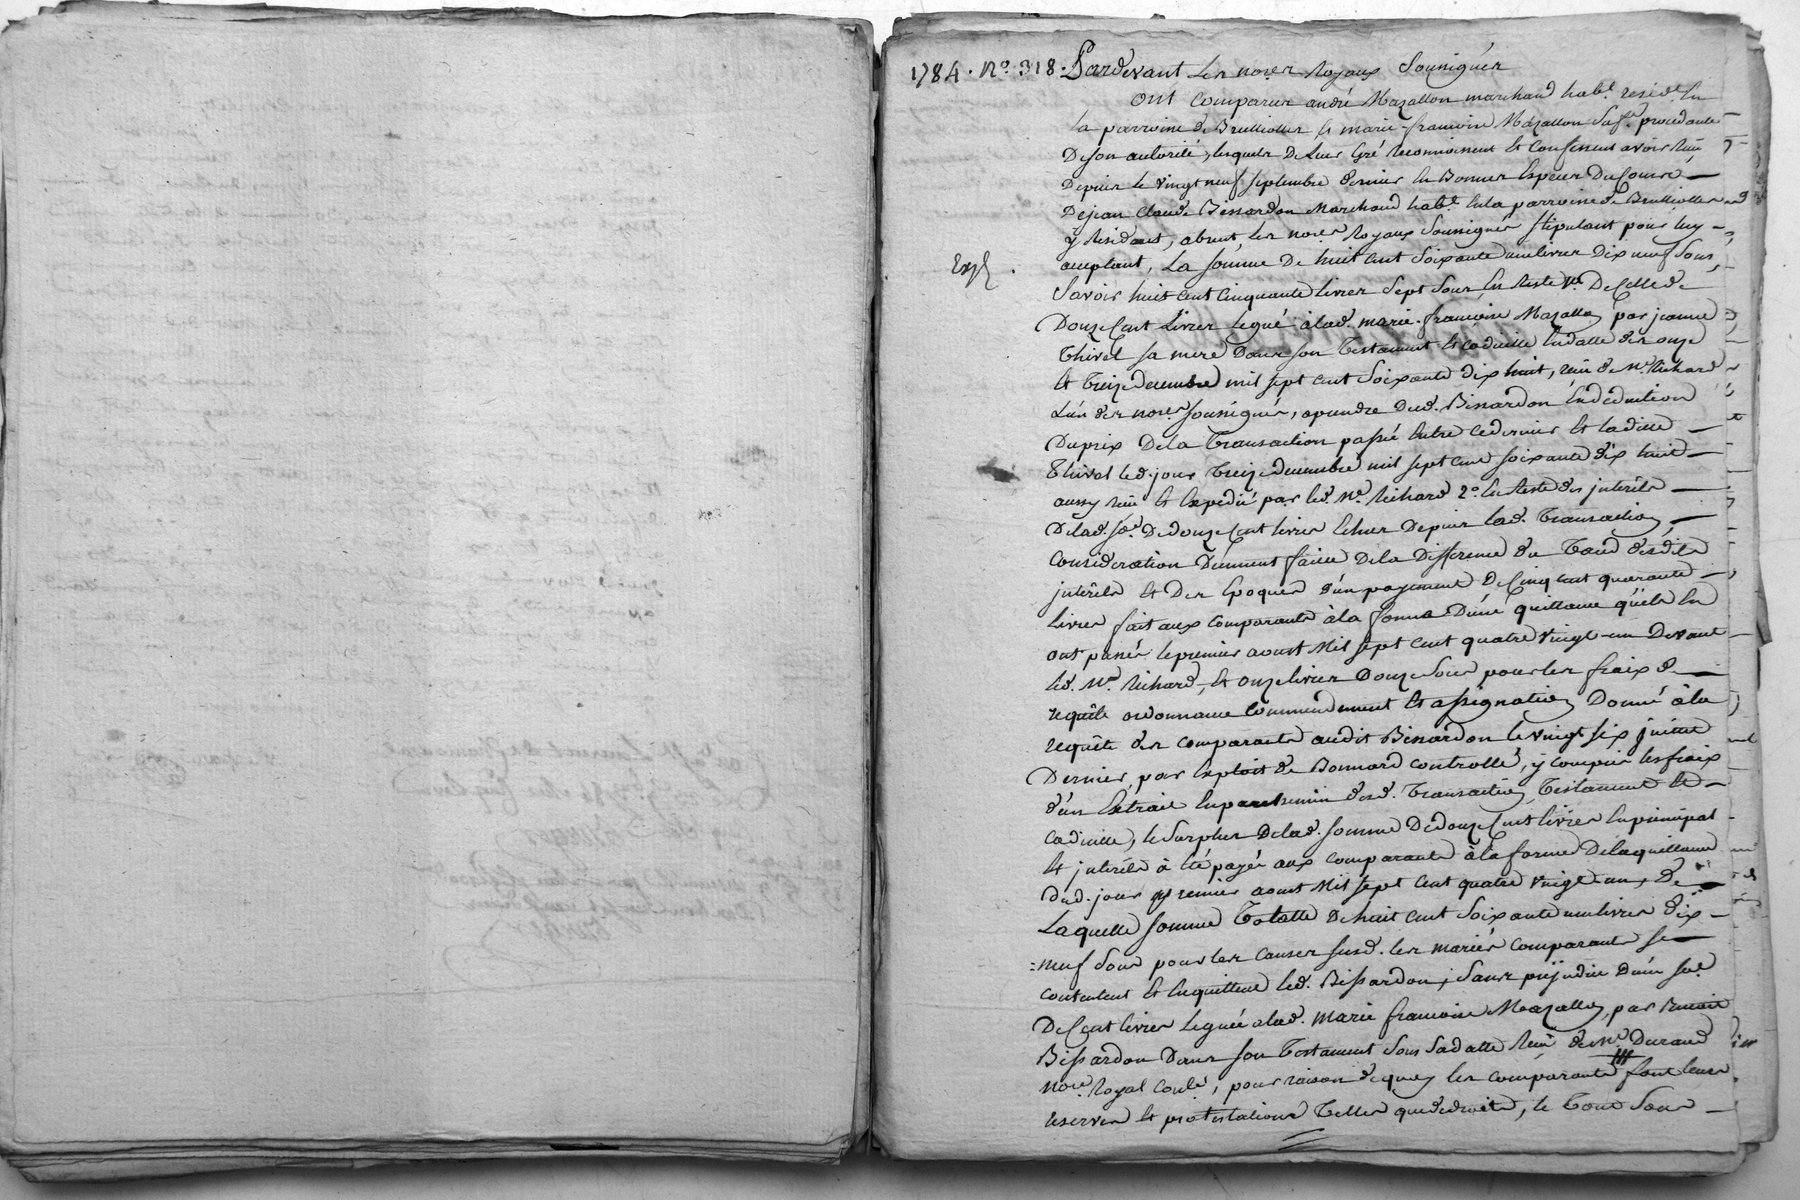 1784. N.º 318. Pardevant les no.res royaux soussignés
ont comparus andré Mazallon marchand hab.t resid.t en
la parroisse de Brullioller et marie-francoise Mazallon sa f.e procedante
de son autorité, lesquels de leur gré reconnoissent et confessent avoir reçu
depuis le vingt neuf septembre dernier en Bonnes Especes du Cours
de jean Claude Bissardon Marchand hab.t en la parroisse de Brullioller
y residant, absent, les no.res royaux soussignés stipulant pour luy
Exp.é
acceptant, La somme de huit cent soixante une livres dix neuf sous,
Savoir huit cent cinquante livres sept sous en reste de Celle de
Douze Cent Livres legué à lad. marie-francoise Mazallon par jeanne
Thivel sa mere dans son testament et codicille en datte des onze
et treize decembre mil sept cent soixante dix huit, reçu de M.e Richard
L'un des no.res soussignés, a prendre dud. Bissardon en deduction
Du prix de la Transaction passée entre ce dernier et ladite
Thivel led. jour treize decembre mil sept cent soixante dix huit
aussy reçue et expedié par led. M.e Richard 2.º en reste des interêts
Delad. so.e De douze Cent livres echus depuis lad. Transaction,
Consideration duement faite de la Difference du taux desdits
interêts et des Epoques d'un payement de Cinq cent quarante
livres fait aux comparants à la forme d'une quittance qu'ils en
ont passée le premier aoust Mil sept cent quatre vingt-un devant
led. M.e Richard, et onze livres Douze sous pour les fraix de
requête ordonnance commandement et assignation Donné à la
requête des comparants audit Bissardon le vingt six juillet
Dernier, par exploit de Bonnard controllé, y compris les fraix
d'un Extrait en parchemin desd. Transaction, Testament et
Codicille, le surplus de lad. somme De douze Cent livres en principal
et interêts à été payé aux comparants à la forme de la quittance
dud. jour premier aoust Mil sept cent quatre vingt-un, de
Laquelle somme Totalle de huit cent soixante une livres dix
=neuf sous pour les causes susd. les mariés comparants se
contentent et en quittent led. Bissardon, sans prejudice d'un so.e
De Cent livres leguée a lad. Marie francoise Mazallon, par Benoit
Bissardon dans son Testament sous sa datte reçu de M.e Durand
no.re royal Con.lé, pour raison de quoy les comparants font leurs
reserves et protestations Telles que de droit, le tout sous